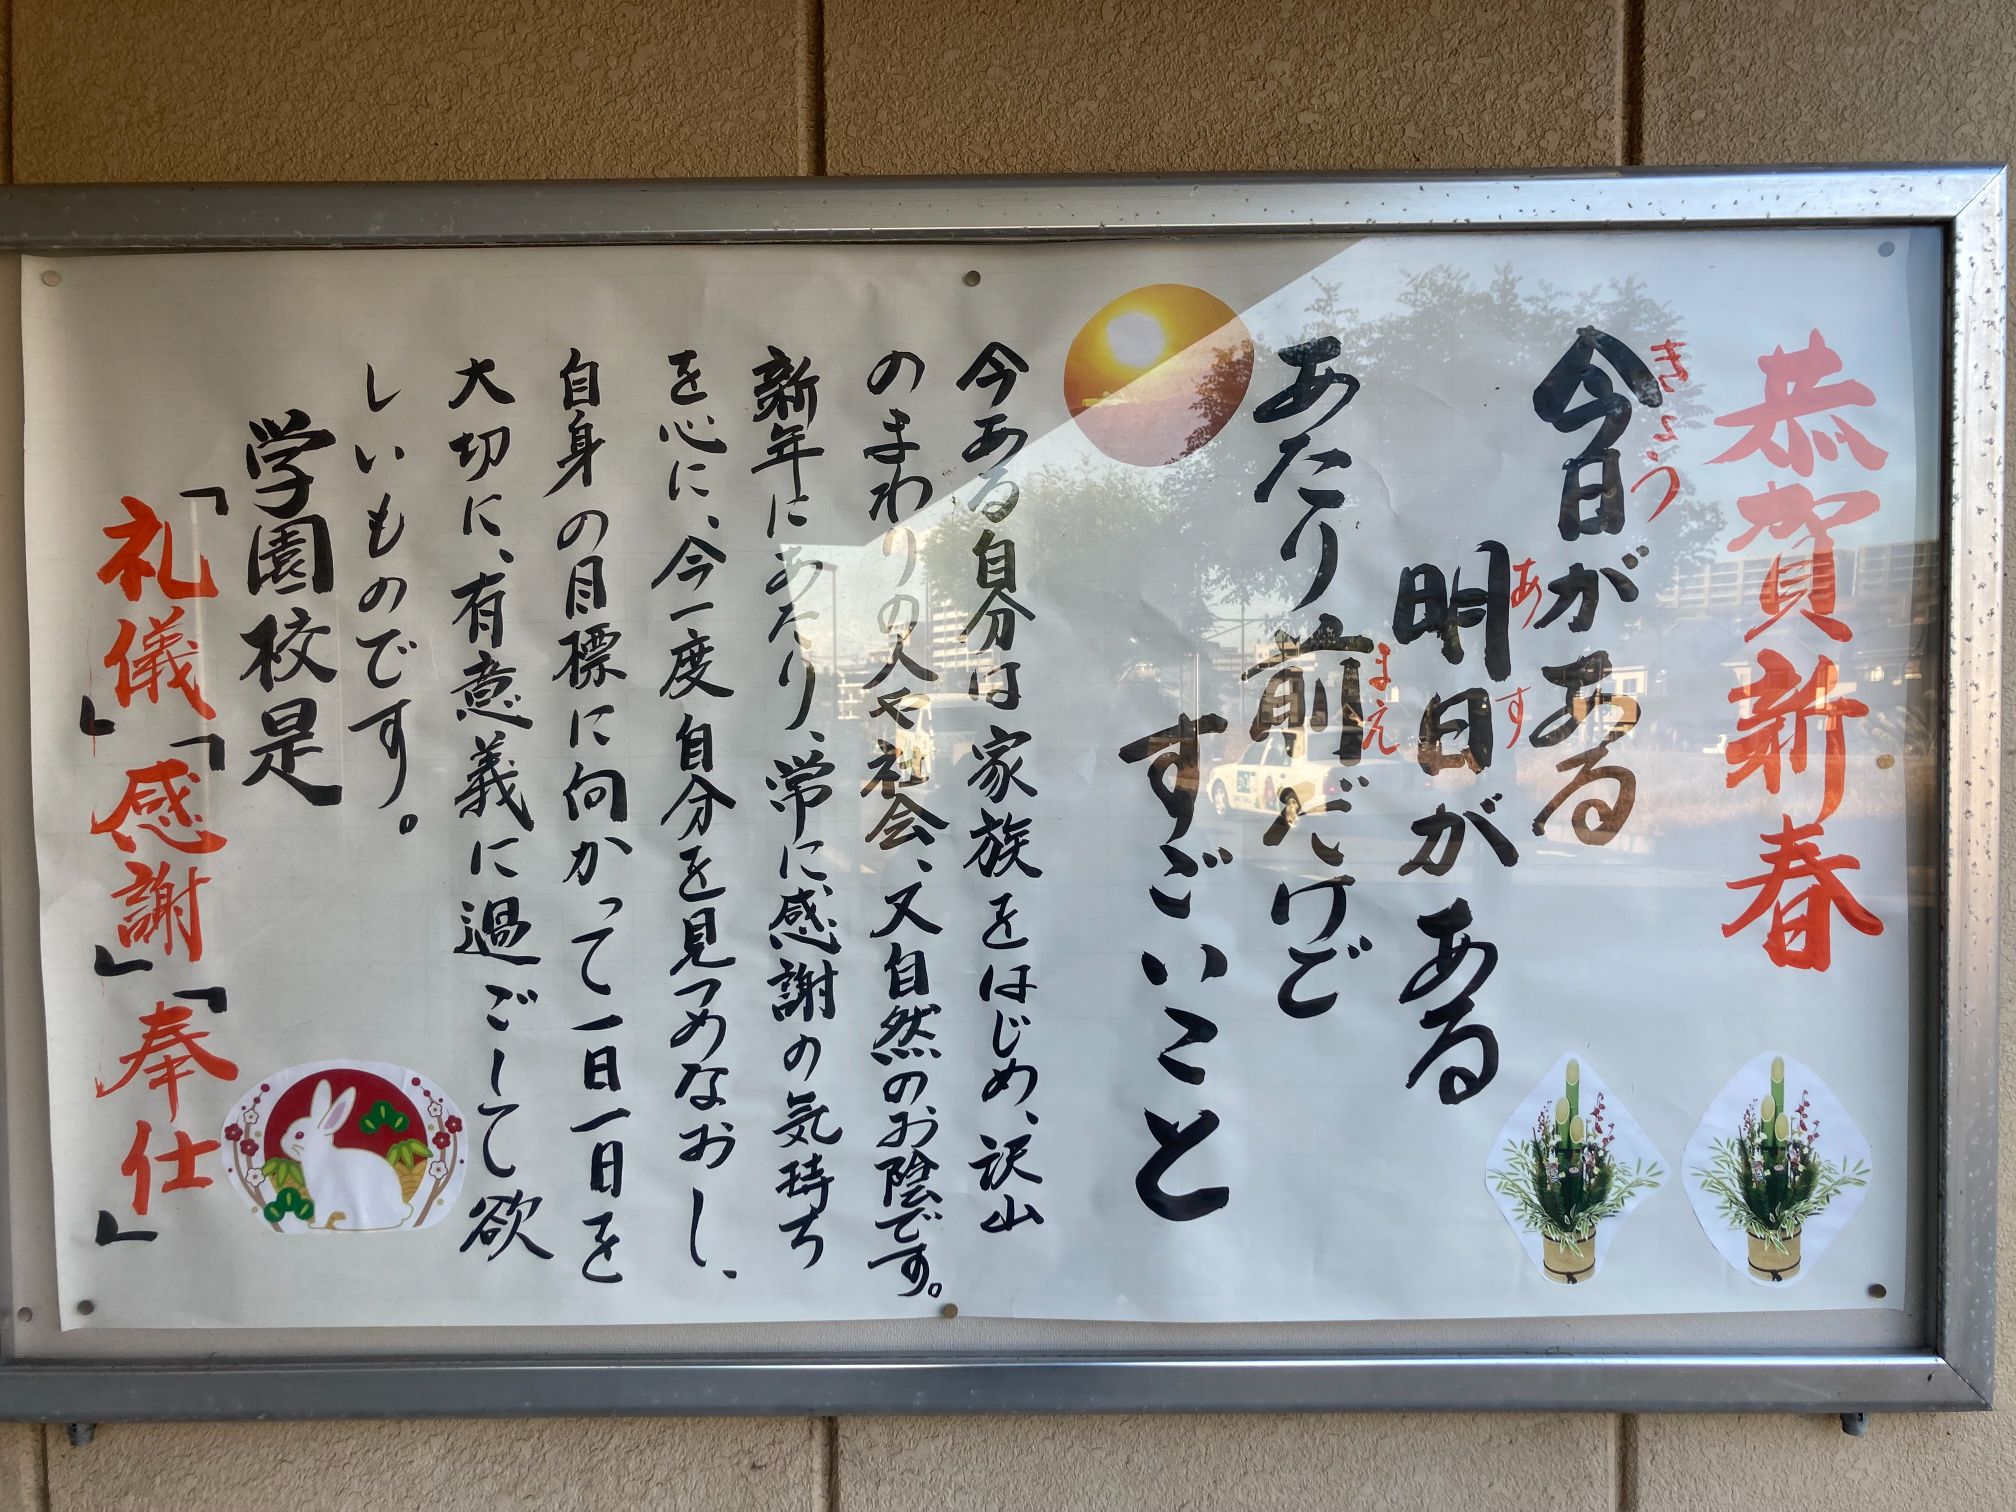 恭賀新春
今日がある
きょう
明日がある
あす
あたり前だけど
まえ
すごいこと
今ある自分は家族をはじめ、沢山
のまわりの人や社会、又自然のお陰です。
新年にあたり、常に感謝の気持ち
を心に、今一度自分を見つめなおし、
自身の目標に向かって一日一日を
大切に、有意義に過ごして欲
しいものです。
学園校是
「礼儀」「感謝」「奉仕」